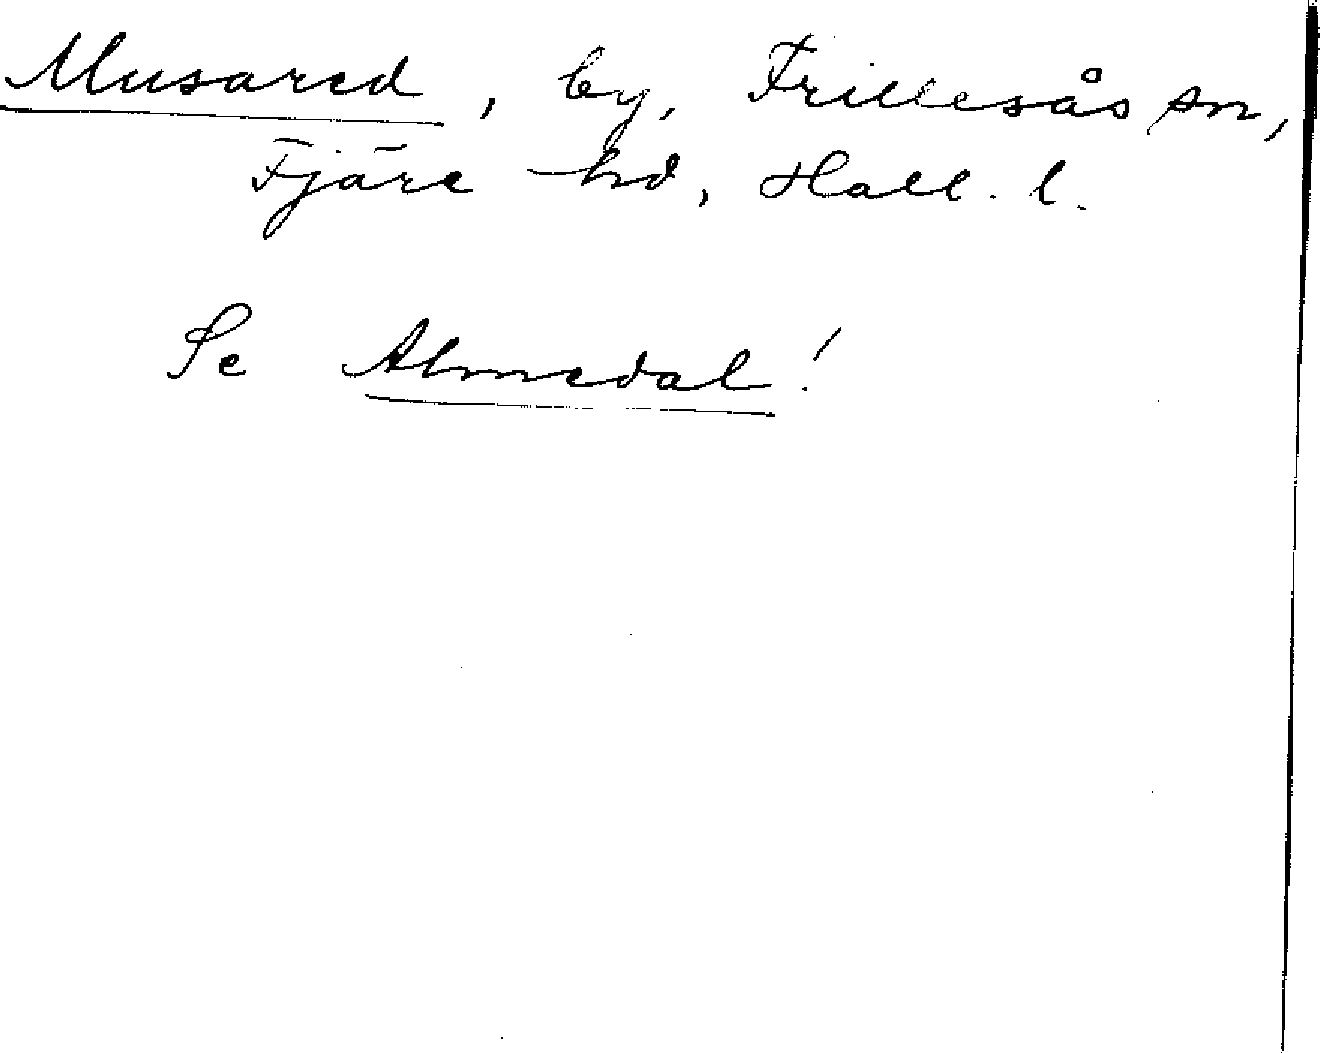 Musared, by, Frillesås sn,
Fjäre hd, Hall. l.
Se Almedal!